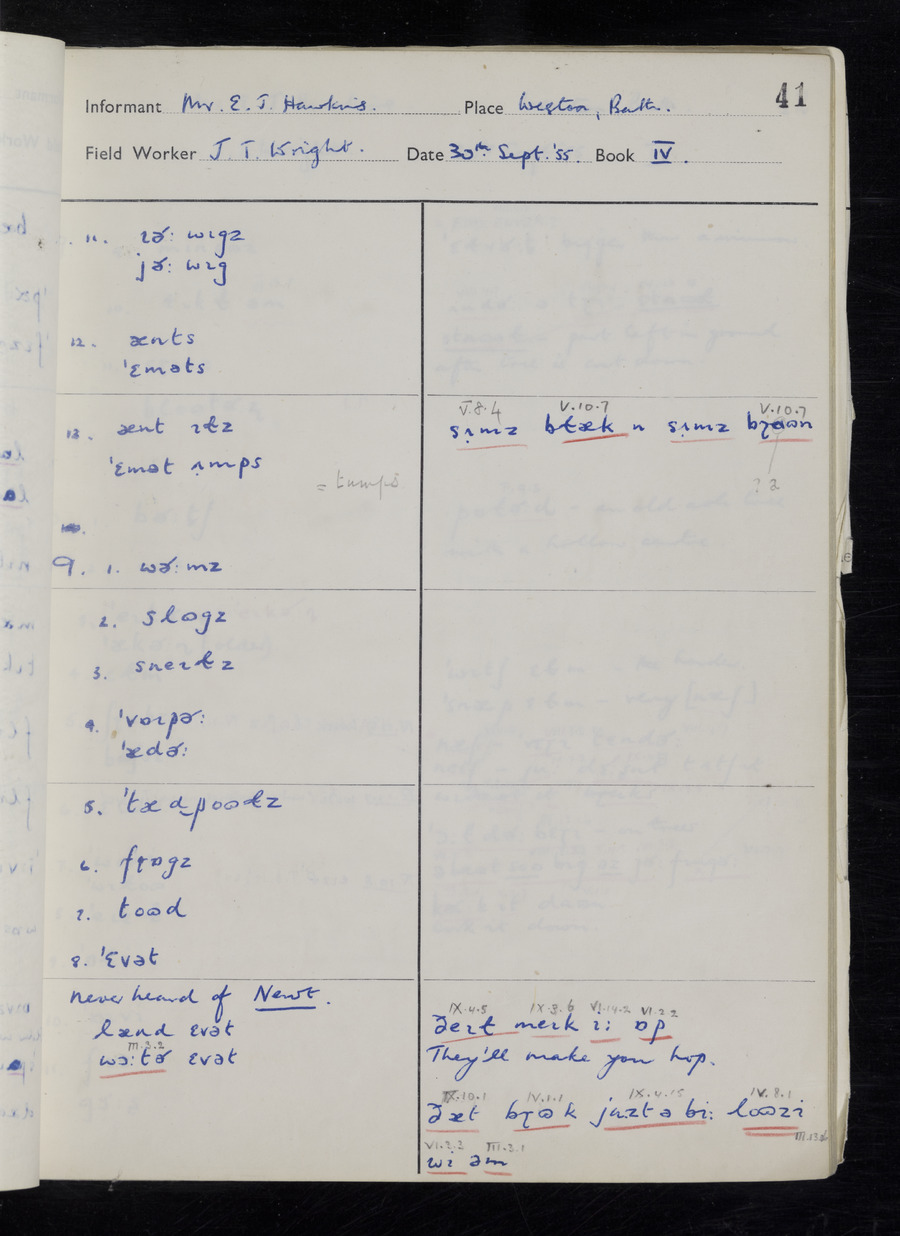 41
Informant Mr. E. J. Hawkins. Place Weston, Bath.
Field Worker J. T. Wright. Date 30th Sept. '55. Book IV.
11. ɪɚ: wɪgz
jɚ: wɪg
12. ænts
'ɛməts
13. ænt ɪɫz
'ɛmət ʌmps
= tumps
V.8.4 V.10.7 V.10.7
sʌmz bɫæk n sʌmz bɽɑʊn
? a
9. 1. wɚ:mz
2. slɒgz
3. sneɪɫz
4. 'vɒɪpɚ:
'ædɚ:
5. 'tædpooɫz
6. fɽɒgz
7. tood
8. 'ɛvət
never heard of Newt.
lænd ɛvət
III.3.2
wɔ:tɚ ɛvət
IX.4.5 IX.3.6 VI.14.2 VI.2.2
ðeɪɫ meɪk i: ɒp
They'll make you hop.
IX.10.1 IV.1.1 IX.4.15 IV.8.1
ðæt bɽʊk juztə bi: loʊzi
III.13.6
VI.2.2 III.3.1
wɪ əm